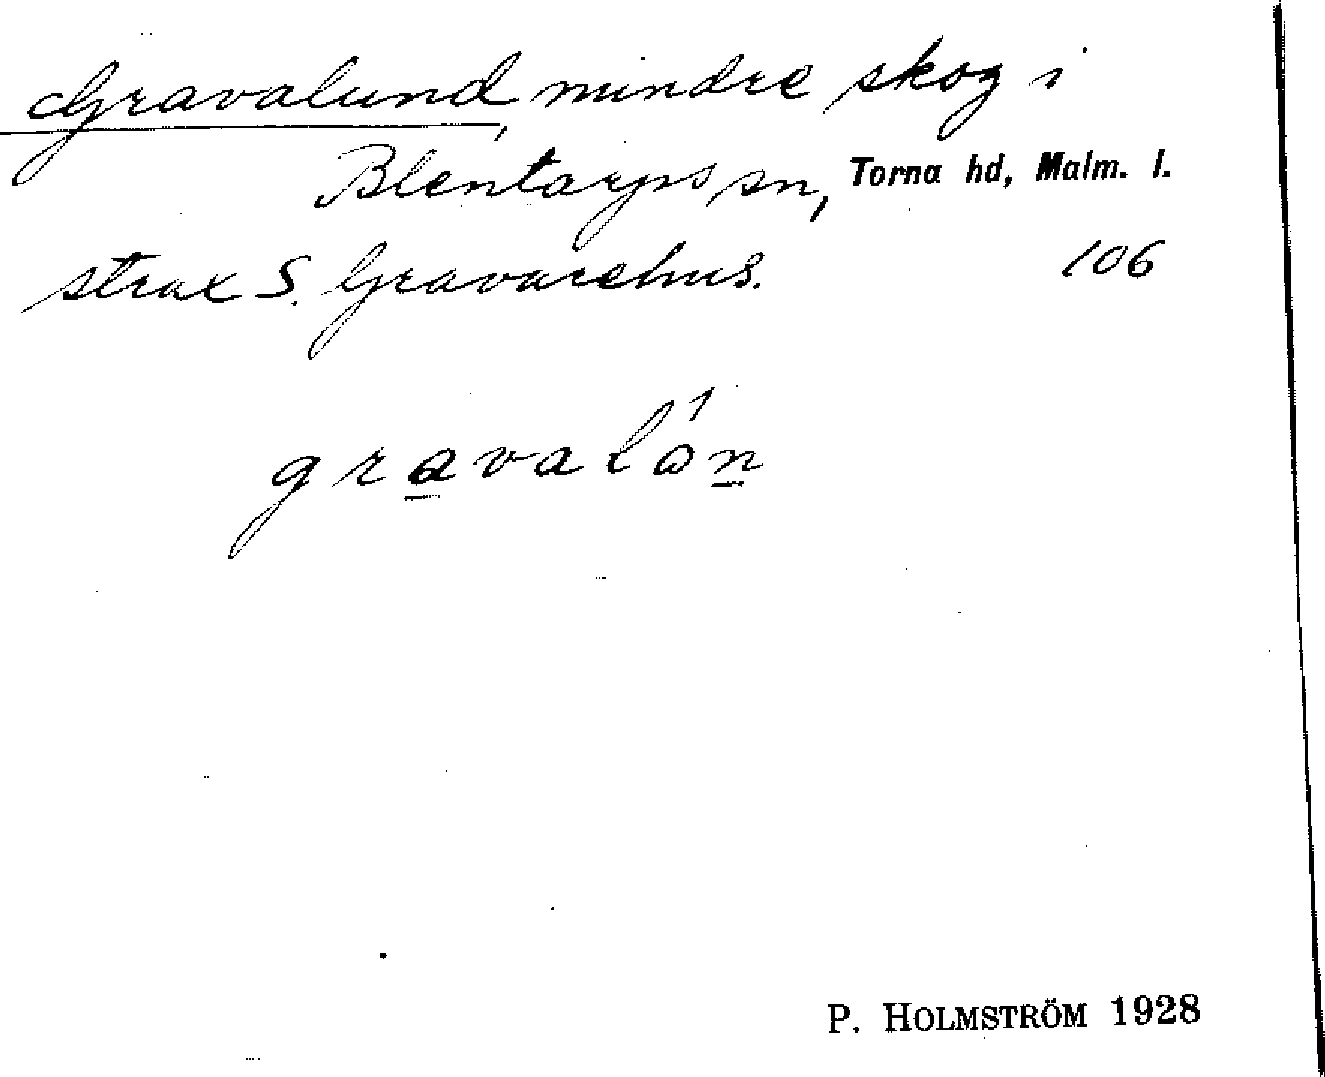 Gravalund, mindre skog i
Blentarps sn, Torna hd, Malm. l.
strax S. Gravarehus. 106
gravaló̱n
P. HOLMSTRÖM 1928